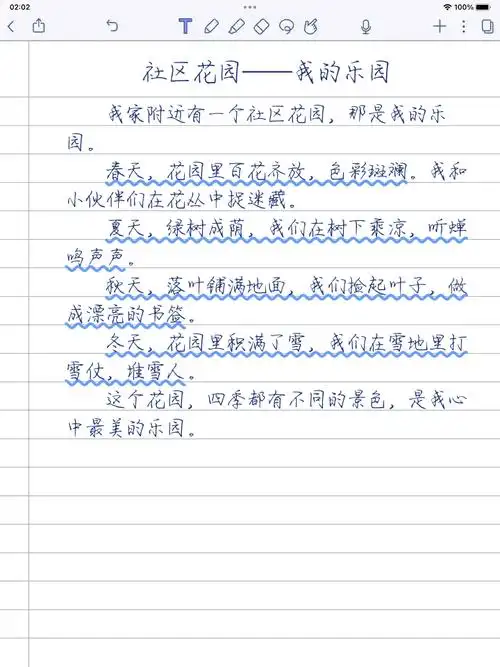 02:02
100%
社区花园——我的乐园
我家附近有一个社区花园，那是我的乐
园。
春天，花园里百花齐放，色彩斑斓。我和
小伙伴们在花丛中捉迷藏。
夏天，绿树成荫，我们在树下乘凉，听蝉
鸣声声。
秋天，落叶铺满地面，我们捡起叶子，做
成漂亮的书签。
冬天，花园里积满了雪，我们在雪地里打
雪仗，堆雪人。
这个花园，四季都有不同的景色，是我心
中最美的乐园。